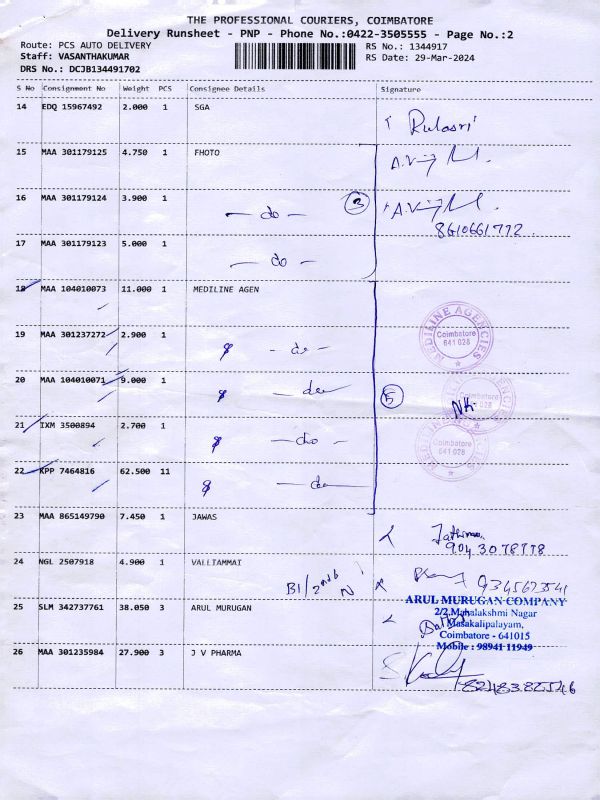 THE PROFESSIONAL COURIERS, COIMBATORE
Delivery Runsheet - PNP - Phone No.:0422-3505555 - Page No.:2
Route: PCS AUTO DELIVERY RS No.: 1344917
Staff: VASANTHAKUMAR RS Date: 29-Mar-2024
DRS No.: DCJB134491702
S No Consignment No Weight PCS Consignee Details Signature
14 EDQ 15967492 2.000 1 SGA
15 MAA 301179125 4.750 1 FHOTO
16 MAA 301179124 3.900 1 - do - 3
8610661772
17 MAA 301179123 5.000 1 - do -
18 MAA 104010073 11.000 1 MEDILINE AGEN
MEDILINE AGENCIES
Coimbatore
641 028
19 MAA 301237272 2.900 1 - do -
20 MAA 104010071 9.000 1 - do 5
Coimbatore
21 IXM 3500894 2.700 1 - do -
MEDILINE
Coimbatore
641 028
22 KPP 7464816 62.500 11 - do
23 MAA 865149790 7.450 1 JAWAS
24 NGL 2507918 4.900 1 VALLIAMMAI
25 SLM 342737761 38.050 3 ARUL MURUGAN
ARUL MURUGAN COMPANY
2/2, Mahalakshmi Nagar
Masakalipalayam,
Coimbatore - 641015
Mobile : 98941 11949
26 MAA 301235984 27.900 3 J V PHARMA